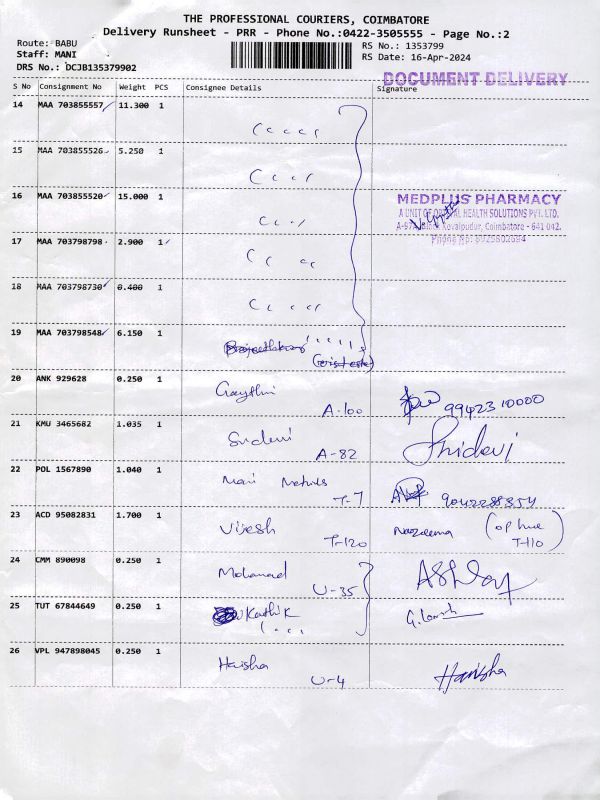 THE PROFESSIONAL COURIERS, COIMBATORE
Delivery Runsheet - PRR - Phone No.:0422-3505555 - Page No.:2
Route: BABU
Staff: MANI
DRS No.: DCJB135379902
RS No.: 1353799
RS Date: 16-Apr-2024
DOCUMENT DELIVERY
S No Consignment No Weight PCS Consignee Details Signature
14 MAA 703855557 11.300 1
15 MAA 703855526 5.250 1
16 MAA 703855520 15.000 1
MEDPLUS PHARMACY
A UNIT OF HEALTH SOLUTIONS PVT. LTD.
Kovaipudur, Coimbatore - 641 042.
17 MAA 703798798 2.900 1
18 MAA 703798730 0.400 1
19 MAA 703798548 6.150 1
20 ANK 929628 0.250 1 Gaythri A-100 9942310000
21 KMU 3465682 1.035 1 Sridevi A-82 Sridevi
22 POL 1567890 1.040 1 Mani T-7
23 ACD 95082831 1.700 1 Vijesh T-120 (op hue T-110)
24 CMM 890098 0.250 1 Mohamad U-35
25 TUT 67844649 0.250 1 Karthik
26 VPL 947898045 0.250 1 Harisha U-4 Harisha